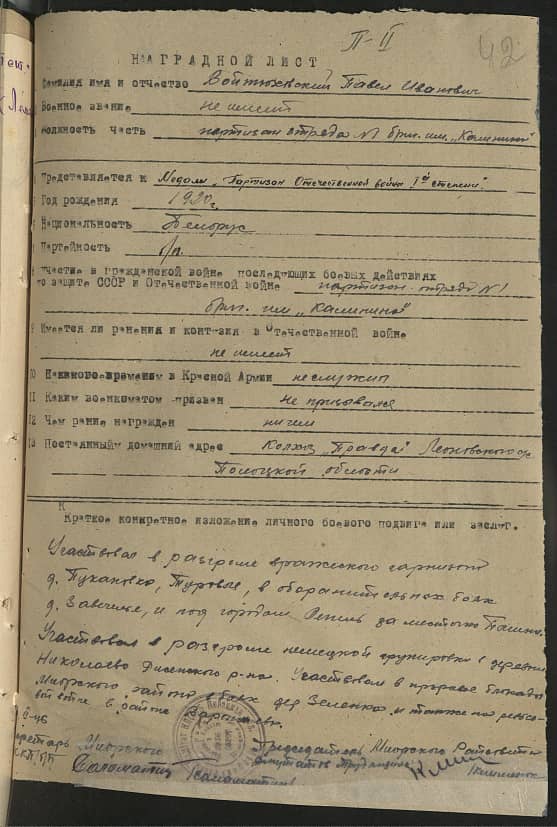 П-II
42
НАГРАДНОЙ ЛИСТ
Фамилия имя и отчество Войтюховский Павел Иванович
Военное звание не имеет
Должность часть партизан отряда №1 бриг. им. „Калинина"
Представляется к Медали „Партизан Отечественной войны Iой степени"
Год рождения 1920г.
Национальность Белорус
Партийность б/п
Участие в гражданской войне последующих боевых действиях
по защите СССР и Отечественной войне партизан отряда №1
бриг. им „Калинина"
9 Имеется ли ранения и контузия в Отечественной войне
не имеет
10 в Красной Армии не служил
11 Каким военкоматом призван не призывался
12 Чем ранее награжден ничем
13 Постаянным домашний адрес Колхоз „Правда"
Полоцкой области
К
Краткое конкретное изложение личного боевого подвига или заслуг.
Участвовал в разгроме вражеского гарнизона
д. Туровые, в оборонительных боях
д. и под городом за местечко
Участвовал в разгроме немецкой группировки в деревне
Николаево Дисенского р-на. Участвовал в прорыве блокады
Миорского района в боях дер Зеленка и также на
вой войне в районе
Миорского Председатель Миорского Райсовета
депутатов трудящихся